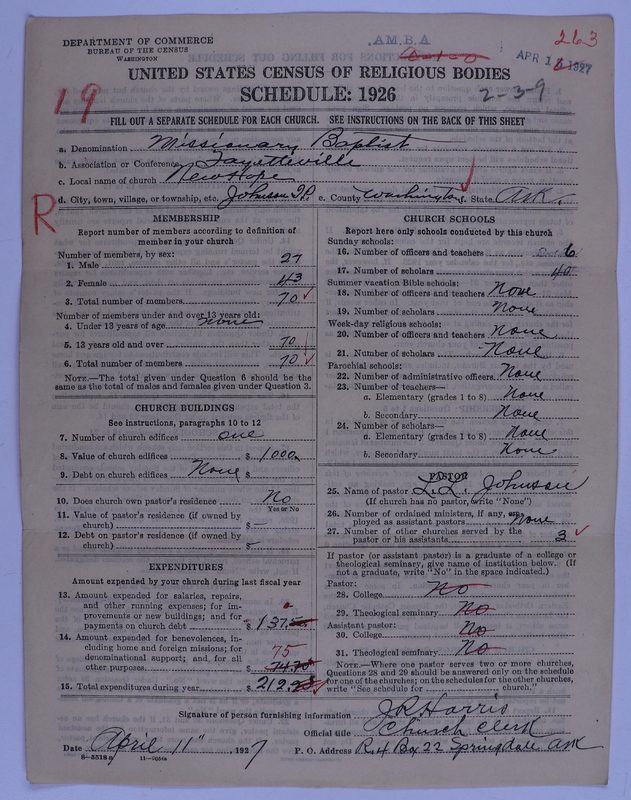 DEPARTMENT OF COMMERCE
BUREAU OF THE CENSUS
WASHINGTON
A.B.M.A.
263
APR 1 1927
UNITED STATES CENSUS OF RELIGIOUS BODIES
SCHEDULE: 1926
2-3-9
19
FILL OUT A SEPARATE SCHEDULE FOR EACH CHURCH. SEE INSTRUCTIONS ON THE BACK OF THIS SHEET
a. Denomination Missionary Baptist
b. Association or Conference Fayetteville
c. Local name of church New Hope
d. City, town, village, or township, etc. Johnson e. County Washington State Ark.
R
MEMBERSHIP
Report number of members according to definition of
member in your church
Number of members, by sex:
1. Male 27
2. Female 43
3. Total number of members 70
Number of members under and over 13 years old:
4. Under 13 years of age none
5. 13 years old and over 70
6. Total number of members 70
NOTE.—The total given under Question 6 should be the
same as the total of males and females given under Question 3.
CHURCH BUILDINGS
See instructions, paragraphs 10 to 12
7. Number of church edifices one
8. Value of church edifices $ 1000
9. Debt on church edifices None $
10. Does church own pastor's residence No
Yes or No
11. Value of pastor's residence (if owned by
church) $ —
12. Debt on pastor's residence (if owned by
church) $ —
EXPENDITURES
Amount expended by your church during last fiscal year
13. Amount expended for salaries, repairs,
and other running expenses; for im-
provements or new buildings; and for
payments on church debt $ 137
14. Amount expended for benevolences, in-
cluding home and foreign missions; for
denominational support; and for all 75
other purposes $
15. Total expenditures during year $ 212
CHURCH SCHOOLS
Report here only schools conducted by this church
Sunday schools:
16. Number of officers and teachers 6
17. Number of scholars 40
Summer vacation Bible schools:
18. Number of officers and teachers None
19. Number of scholars None
Week-day religious schools:
20. Number of officers and teachers None
21. Number of scholars None
Parochial schools:
22. Number of administrative officers None
23. Number of teachers—
a. Elementary (grades 1 to 8) None
b. Secondary None
24. Number of scholars—
a. Elementary (grades 1 to 8) None
b. Secondary None
PASTOR
25. Name of pastor L.L. Johnson
(If church has no pastor, write "None")
26. Number of ordained ministers, if any, em-
ployed as assistant pastors None
27. Number of other churches served by the
pastor or his assistants 3
If pastor (or assistant pastor) is a graduate of a college or
theological seminary, give name of institution below. (If
not a graduate, write "No" in the space indicated.)
Pastor:
28. College No
29. Theological seminary No
Assistant pastor:
30. College No
31. Theological seminary No
NOTE.—Where one pastor serves two or more churches,
Questions 28 and 29 should be answered only on the schedule
for one of the churches; on the schedules for the other churches,
write "See schedule for church."
Signature of person furnishing information J R Harris
Official title Church Clerk
Date April 11", 1927 P. O. Address R 4 Bx 22 Springdale Ark
8—5518a 11—9054a